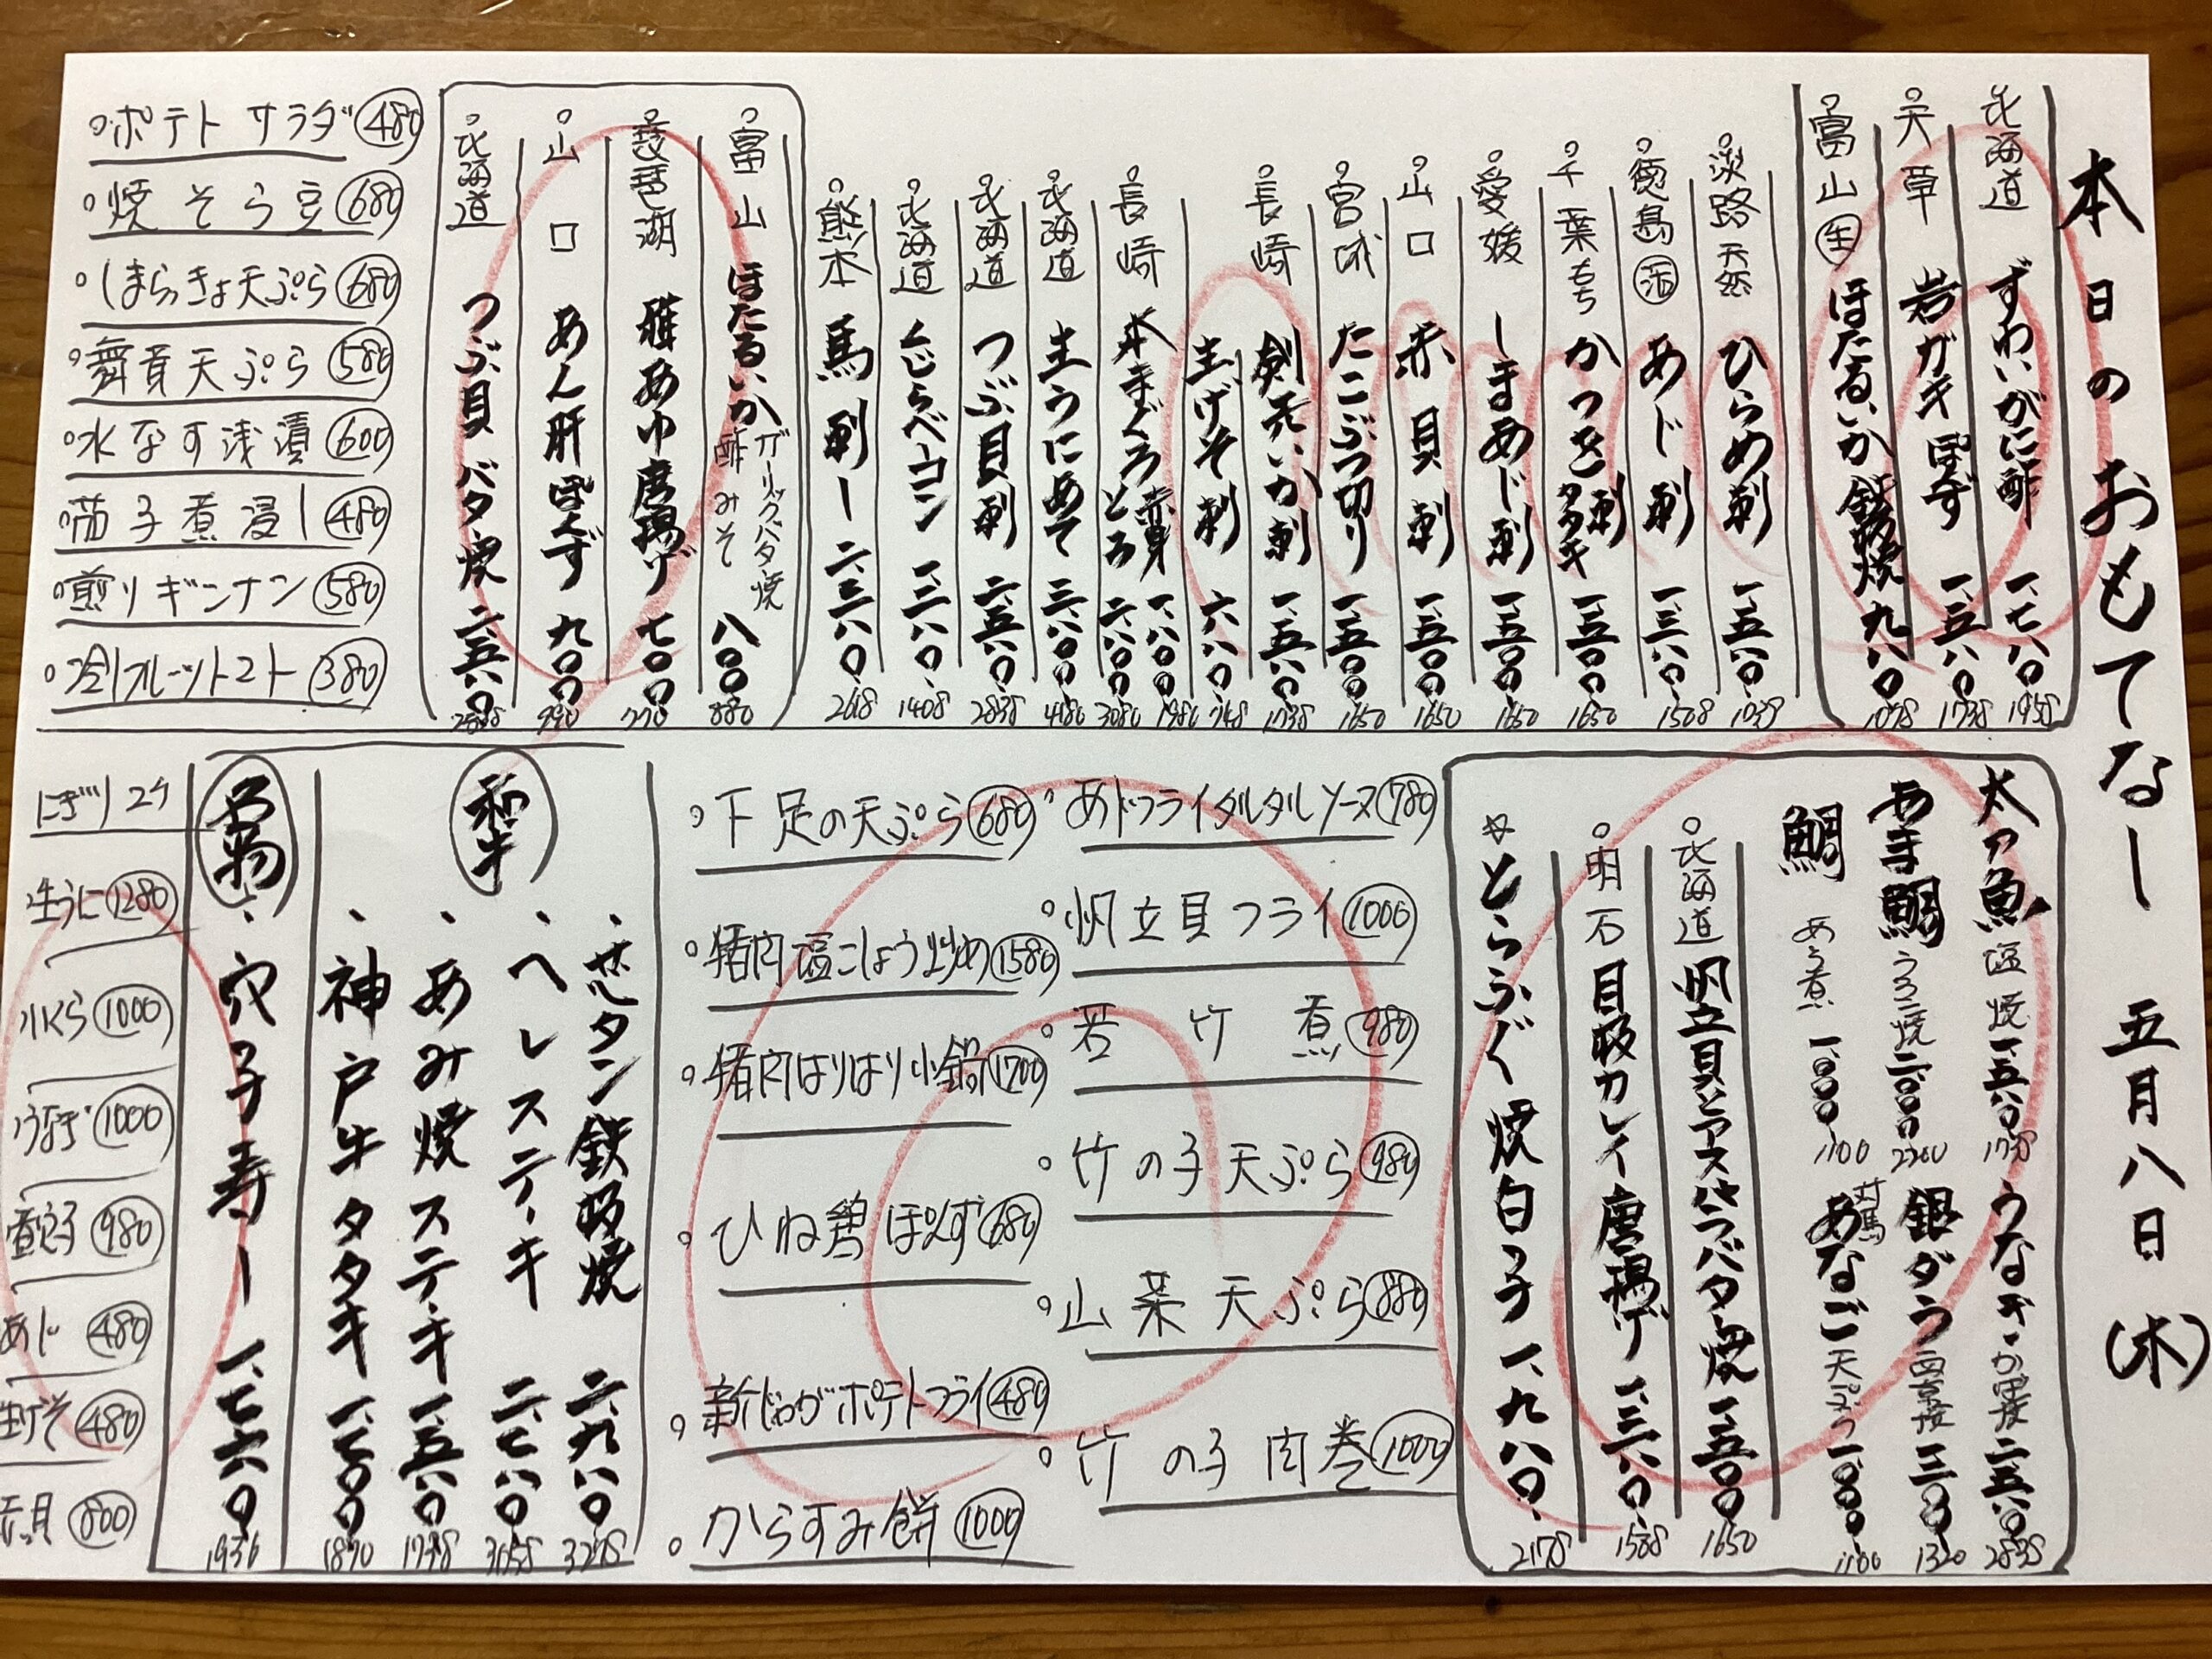 本日のおもてなし 五月八日(木)
北海道 ずわいがに酢 一、七八〇 1958
天草 岩ガキぽんず 一、五八〇 1738
富山 生 ほたるいか鉄板焼 九八〇 1078
淡路 天然 ひらめ刺 一、五八〇
徳島 活 あじ刺 一、三八〇 1508
千葉 もち かつを刺 タタキ 一、五〇〇 1650
愛媛 しまあじ刺 一、五〇〇 1650
山口 赤貝刺 一、五〇〇 1650
宮城 たこぶつ切り 一、五〇〇 1650
長崎 剣先いか刺 一、五八〇 1738
生げそ刺 六八〇 748
長崎 本まぐろ 赤身 一、八〇〇 1980
とろ 二、八〇〇 3080
北海道 生うにあて 三、八〇〇 4180
北海道 つぶ貝刺 二、五八〇 2838
北海道 くじらベーコン 一、二八〇 1408
熊本 馬刺し 二、三八〇 2618
富山 ほたるいか ガーリックバター焼 酢みそ 八〇〇 880
琵琶湖 稚あゆ唐揚げ 七〇〇 770
山口 あん肝ぽんず 九〇〇 990
北海道 つぶ貝バター焼 二、五八〇
ポテトサラダ 480
焼そら豆 680
しまらっきょ天ぷら 680
舞茸天ぷら 580
水なす浅漬 600
茄子煮浸し 480
煎りギンナン 580
冷しフルーツトマト 380
太刀魚 塩焼 一、五八〇 1738
うなぎ かば焼 二、五八〇 2838
あま鯛 うろこ焼 二、〇〇〇 2200
銀ダラ 西京焼 1320
鯛 あら煮 一、〇〇〇 1100
対馬 あなご 天ぷら 一、〇〇〇 1100
北海道 帆立貝とアスパラバター焼 一、五〇〇 1650
明石 目板カレイ唐揚げ 一、三八〇 1508
とらふぐ焼白子 一、九八〇 2178
あじフライタルタルソース 780
帆立貝フライ 1000
若竹煮 980
竹の子天ぷら 980
山菜天ぷら 880
竹の子肉巻 1000
下足の天ぷら 680
猪肉塩こしょう炒め 1580
猪肉はりはり小鍋 1700
ひね鶏ぽんず 680
新じゃがポテトフライ 480
からすみ餅 1000
和牛
、タン鉄板焼 二、九八〇 3278
、ヘレステーキ 二、七八〇 3058
、あみ焼ステーキ 一、五八〇 1738
、神戸牛タタキ 一、七〇〇 1870
名物
、穴子寿し 一、七六〇 1936
にぎり 2ケ
生うに 1280
いくら 1000
うなぎ 1000
煮穴子 980
あじ 480
生げそ 480
赤貝 800